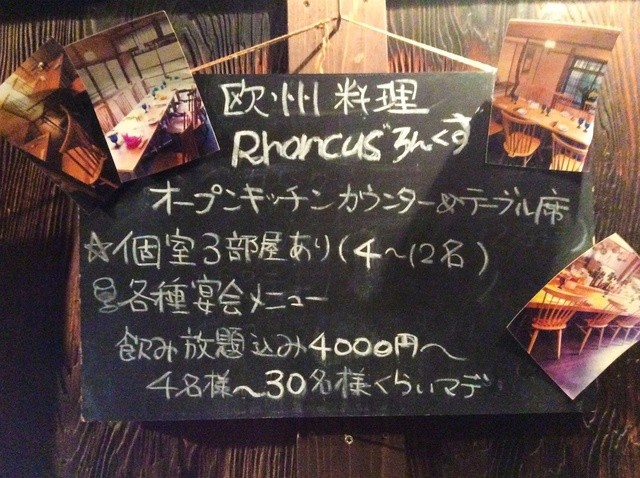 欧州料理
Rhoncus ろんくす
オープンキッチンカウンター&テーブル席
☆個室3部屋あり(4〜12名)
各種宴会メニュー
飲み放題込み4000円〜
4名様〜30名様くらいマデ